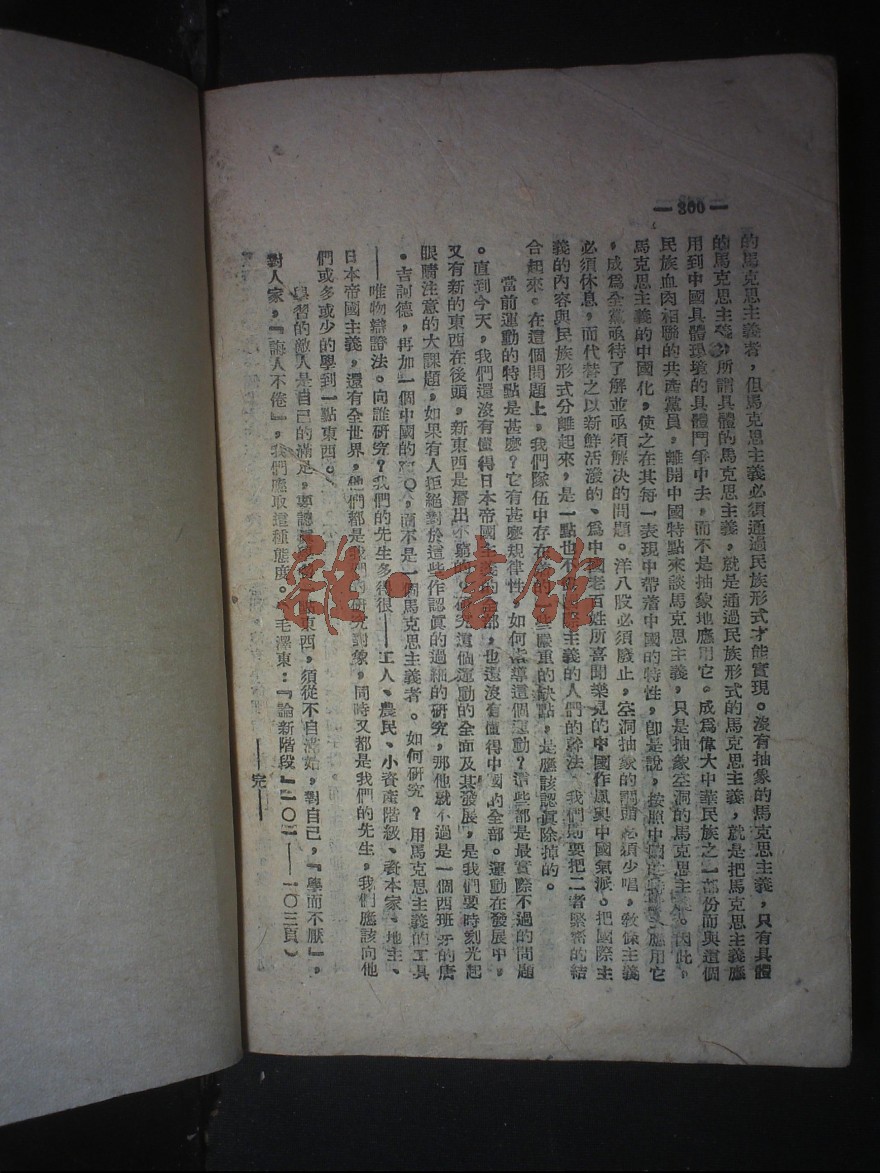 —300—
的馬克思主義者，但馬克思主義必須通過民族形式才能實現。沒有抽象的馬克思主義，只有具體
的馬克思主義。所謂具體的馬克思主義，就是通過民族形式的馬克思主義，就是把馬克思主義應
用到中國具體環境的具體鬥爭中去，而不是抽象地應用它。成爲偉大中華民族之一部份而與這個
民族血肉相聯的共產黨員，離開中國特點來談馬克思主義，只是抽象空洞的馬克思主義。因此，
馬克思主義的中國化，使之在其每一表現中帶著中國的特性，卽是說，按照中國的特點去應用它
，成爲全黨亟待了解並亟須解決的問題。洋八股必須廢止，空洞抽象的調頭必須少唱，教條主義
必須休息，而代替之以新鮮活潑的、爲中國老百姓所喜聞樂見的中國作風與中國氣派。把國際主
義的內容與民族形式分離起來，是一點也不懂國際主義的人們的幹法，我們則要把二者緊密的結
合起來。在這個問題上，我們隊伍中存在着的一些嚴重的缺點，是應該認眞除掉的。
當前運動的特點是甚麼？它有甚麼規律性，如何指導這個運動？這些都是最實際不過的問題
。直到今天，我們還沒有懂得日本帝國主義的全部，也還沒有懂得中國的全部。運動在發展中，
又有新的東西在後頭，新東西是層出不窮的。研究這個運動的全面及其發展，是我們要時刻光起
眼睛注意的大課題，如果有人拒絕對於這些作認眞的過細的研究，那他就不過是一個西班牙的唐
・吉訶德，再加一個中國的阿Q，而不是一個馬克思主義者。如何研究？用馬克思主義的工具
——唯物辯證法。向誰研究？我們的先生多得很——工人、農民、小資產階級、資本家、地主、
日本帝國主義，還有全世界，他們都是我們的研究對象，同時又都是我們的先生，我們應該向他
們或多或少的學到一點東西。
學習的敵人是自己的滿足，要認眞學一點東西，須從不自滿始，對自己，『學而不厭』，
對人家，『誨人不倦』，我們應取這種態度。（毛澤東：『論新階段』一〇二——一〇三頁）
——完——
雜・書館